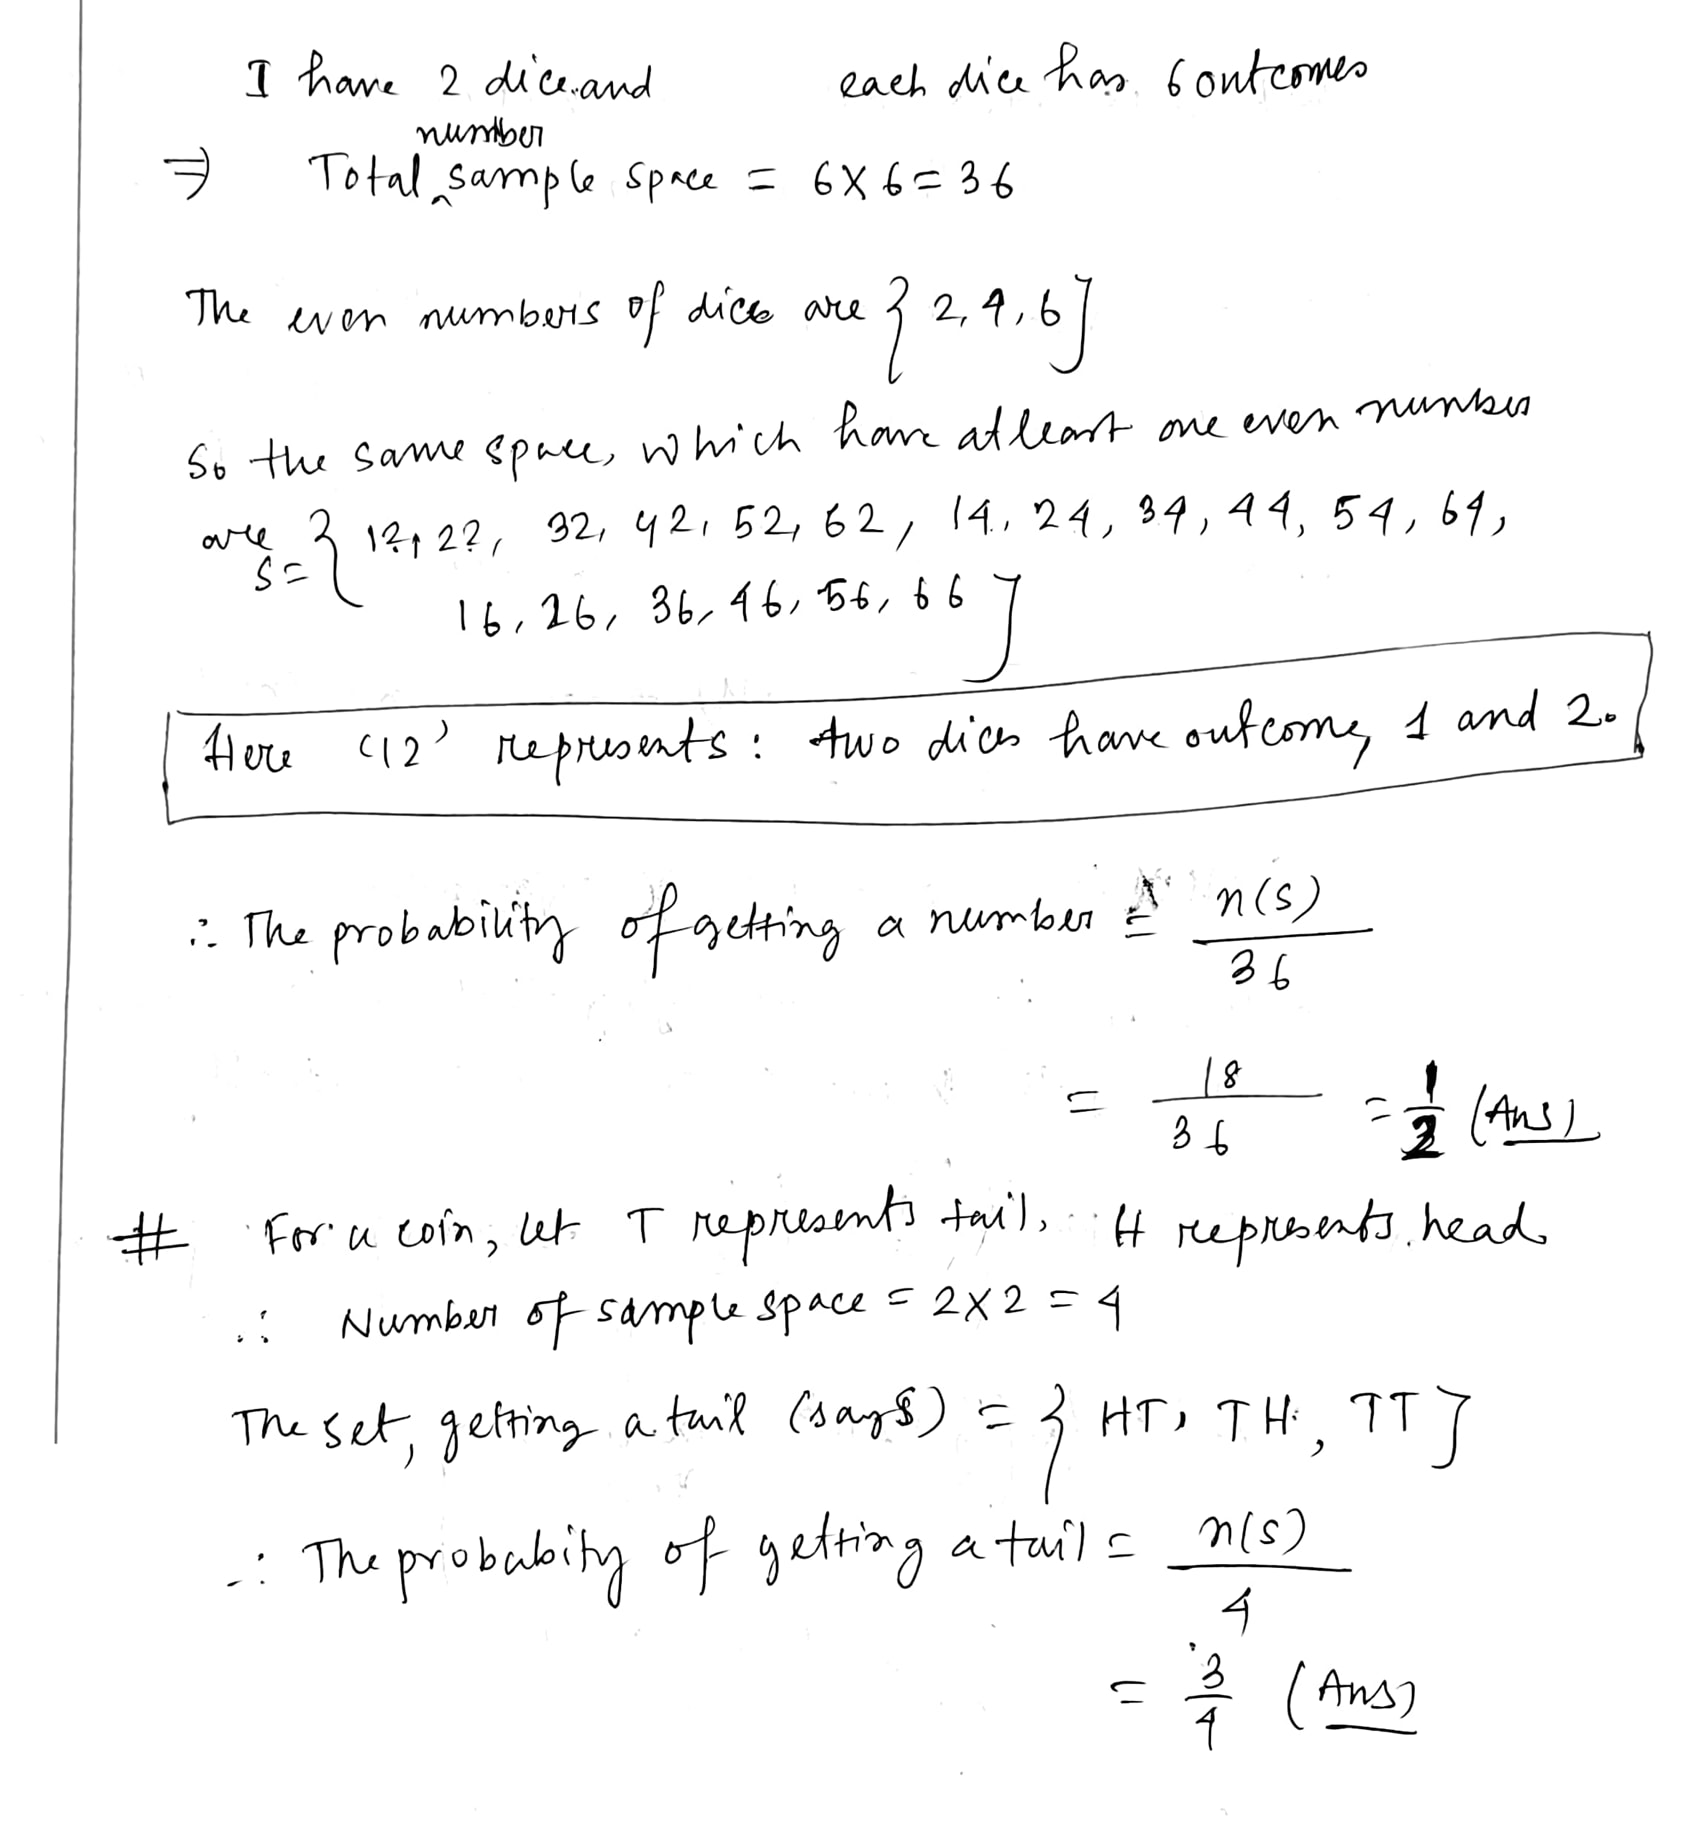 I have 2 dice and each dice has 6 outcomes
number
⇒ Total ‸ sample space = 6×6=36
The even numbers of dice are {2,4,6}
So the same space, which have atleast one even number
are
S= {12, 22, 32, 42, 52, 62, 14, 24, 34, 44, 54, 64,
16, 26, 36, 46, 56, 66}
Here '12' represents: two dices have outcome, 1 and 2.
∴ The probability of getting a number = n(s)/36
= 18/36 = 1/2 (Ans)
# For a coin, let T represents tail, H represents head
∴ Number of sample space = 2×2 = 4
The set, getting a tail (say S) = {HT, TH, TT}
∴ The probabity of getting a tail = n(s)/4
= 3/4 (Ans)